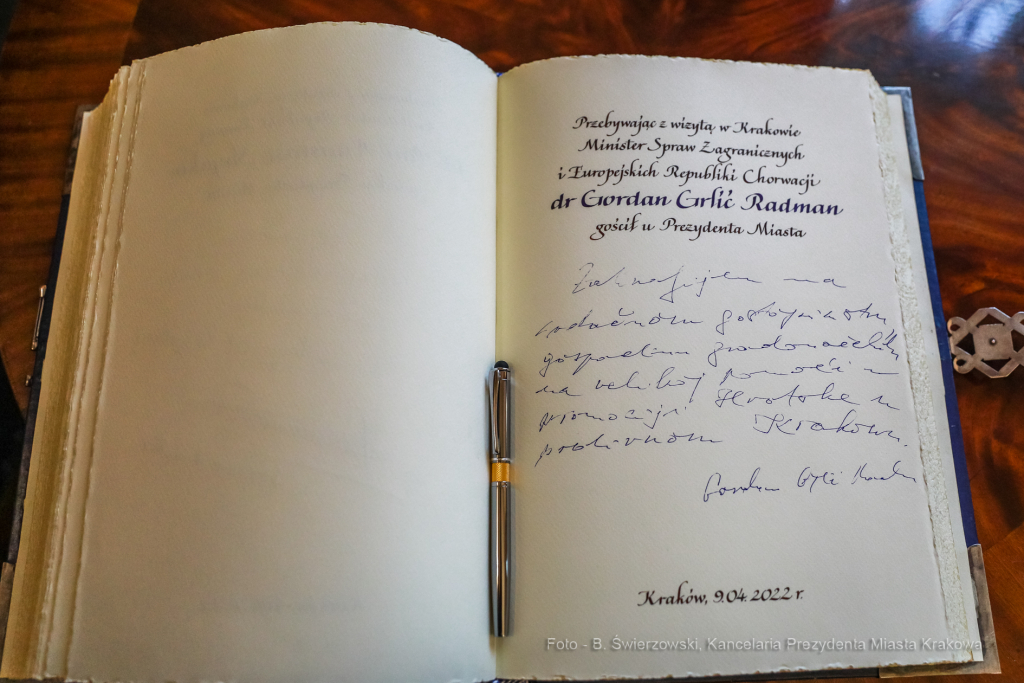 Przebywając z wizytą w Krakowie
Minister Spraw Zagranicznych
i Europejskich Republiki Chorwacji
dr Gordan Grlić Radman
gościł u Prezydenta Miasta
Zahvaljujem na
srdačnom gostoprimstvu
gospodinu gradonačelniku
na velikoj pomoći u
promociji Hrvatske u
predivnom Krakovu.
Gordan Grlić Radman
Kraków, 9.04.2022 r.
Foto - B. Świerzowski, Kancelaria Prezydenta Miasta Krakowa